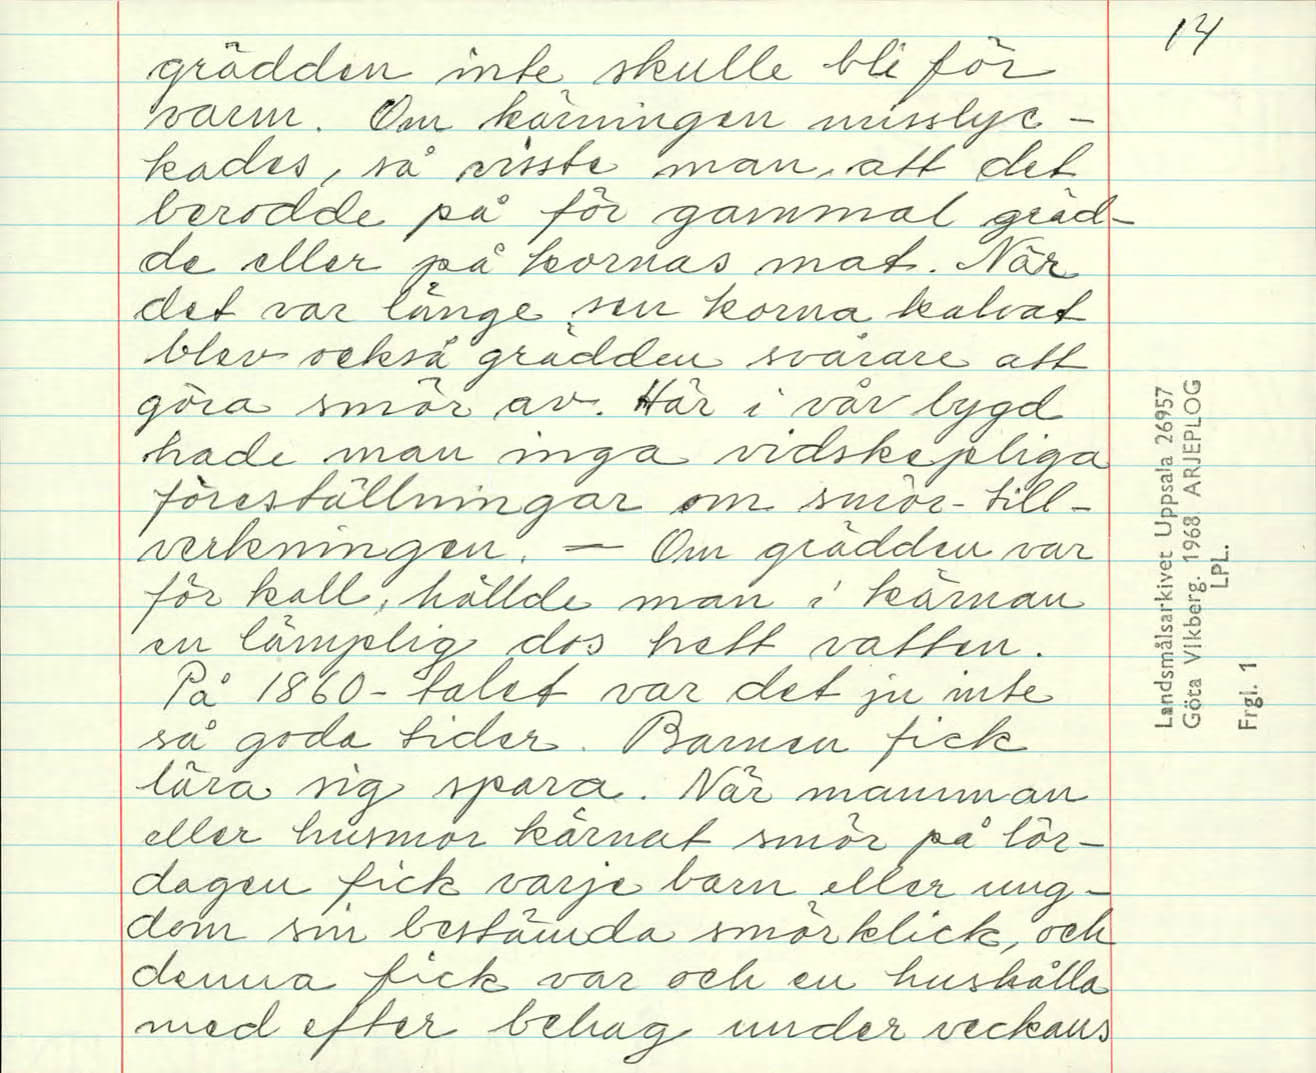 14
grädden inte skulle bli för
varm. Om kärningen misslyc-
kades, så visste man, att det
berodde på för gammal gräd-
de eller på kornas mat. När
det var länge sen korna kalvat
blev också grädden svårare att
göra smör av. Här i vår bygd
hade man inga vidskepliga
föreställningar om smör-till-
verkningen. — Om grädden var
för kall, hällde man i kärnan
en lämplig dos hett vatten.
På 1860-talet var det ju inte
så goda tider. Barnen fick
lära sig spara. När mamman
eller husmor kärnat smör på lör-
dagen fick varje barn eller ung-
dom sin bestämda smörklick, och
denna fick var och en hushålla
med efter behag under veckans
Landsmålsarkivet Uppsala 26957
Göta Vikberg. 1968 ARJEPLOG
LPL.
Frgl. 1